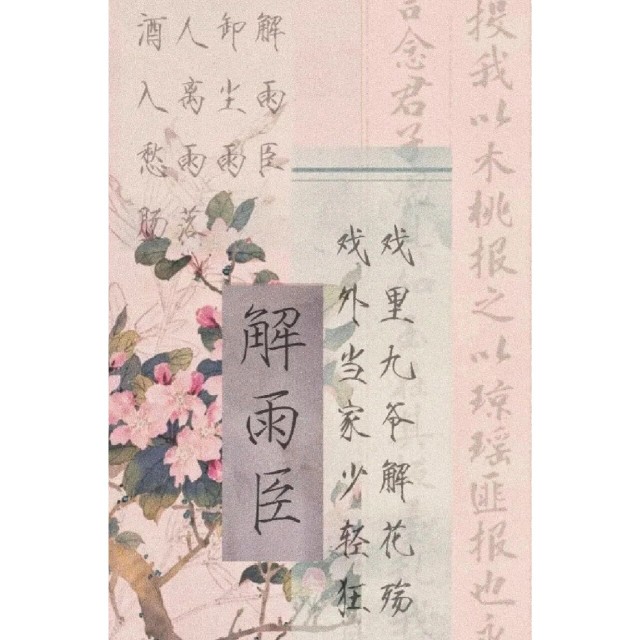 投我以木桃报之以琼瑶匪报也永
言念君子
解雨臣
卸尘雨
人离雨落
酒入愁肠
戏里九爷解花殇
戏外当家少轻狂
解雨臣